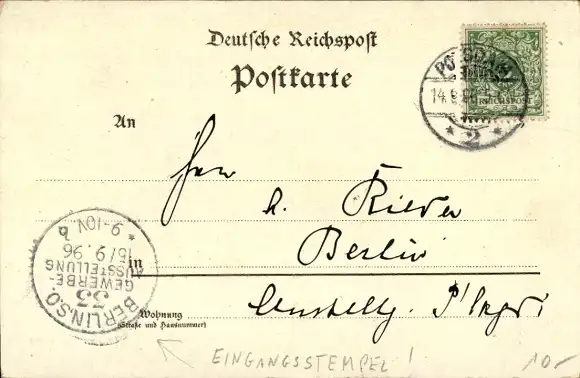 Deutsche Reichspost
Postkarte
An
POTSDAM
14.9.96
REICHSPOST
* 2 *
Herrn
Berlin
in
9-10V b
15/9.96
AUSSTELLUNG
GEWERBE-
55
BERLIN.S.O.
Wohnung
(Straße und Hausnummer)
EINGANGSSTEMPEL!
10.-